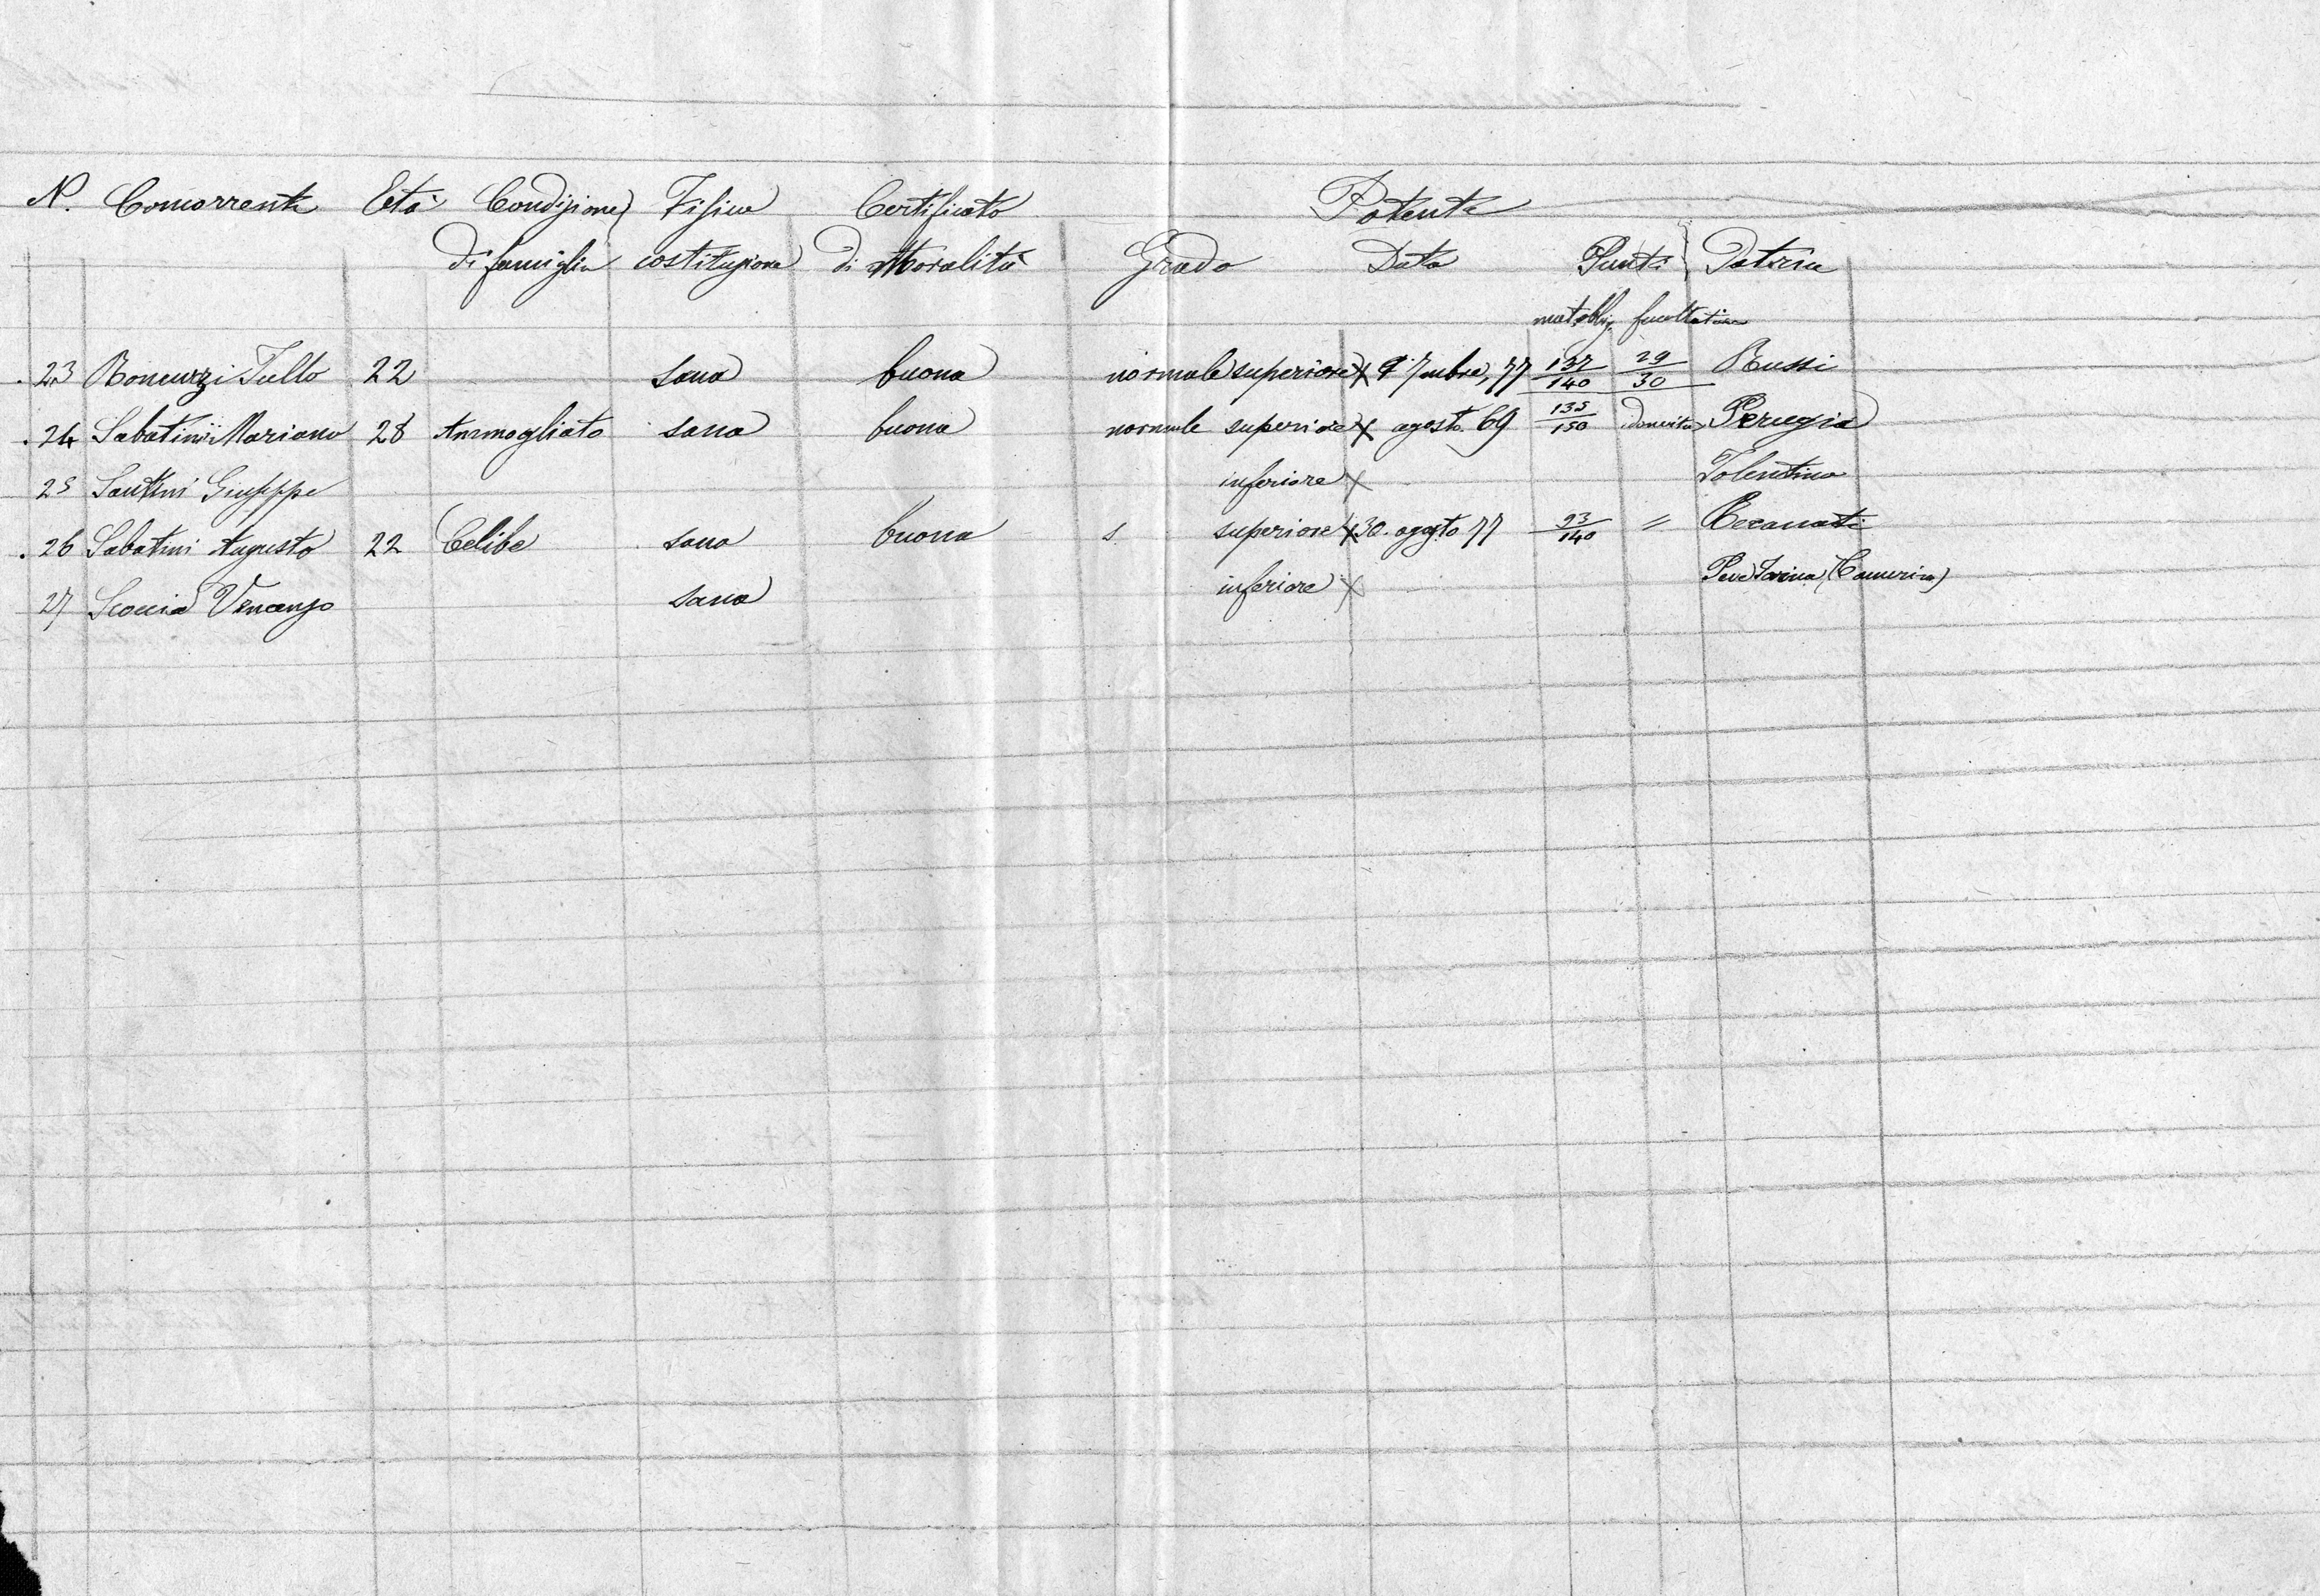 N. Concorrenti Età Condizione Fisica Certificato Patente
di famiglia costituzione di Moralità Grado Data Punti Patria
mat. obblig. facoltative
23 Roncuzzi Tullo 22 sana buona normale superiore X 9 7mbre, 77 137/140 29/30 Russi
24 Sabatini Mariano 28 Ammogliato sana buona normale superiore X agosto 69 135/150 Perugia
25 Santini Giuseppe inferiore X Tolentino
26 Sabatini Augusto 22 Celibe sana buona s superiore X 30. agosto 77 93/140 " Recanati
27 Scoccia Venanzo sana inferiore X Pieve Torina (Camerino)